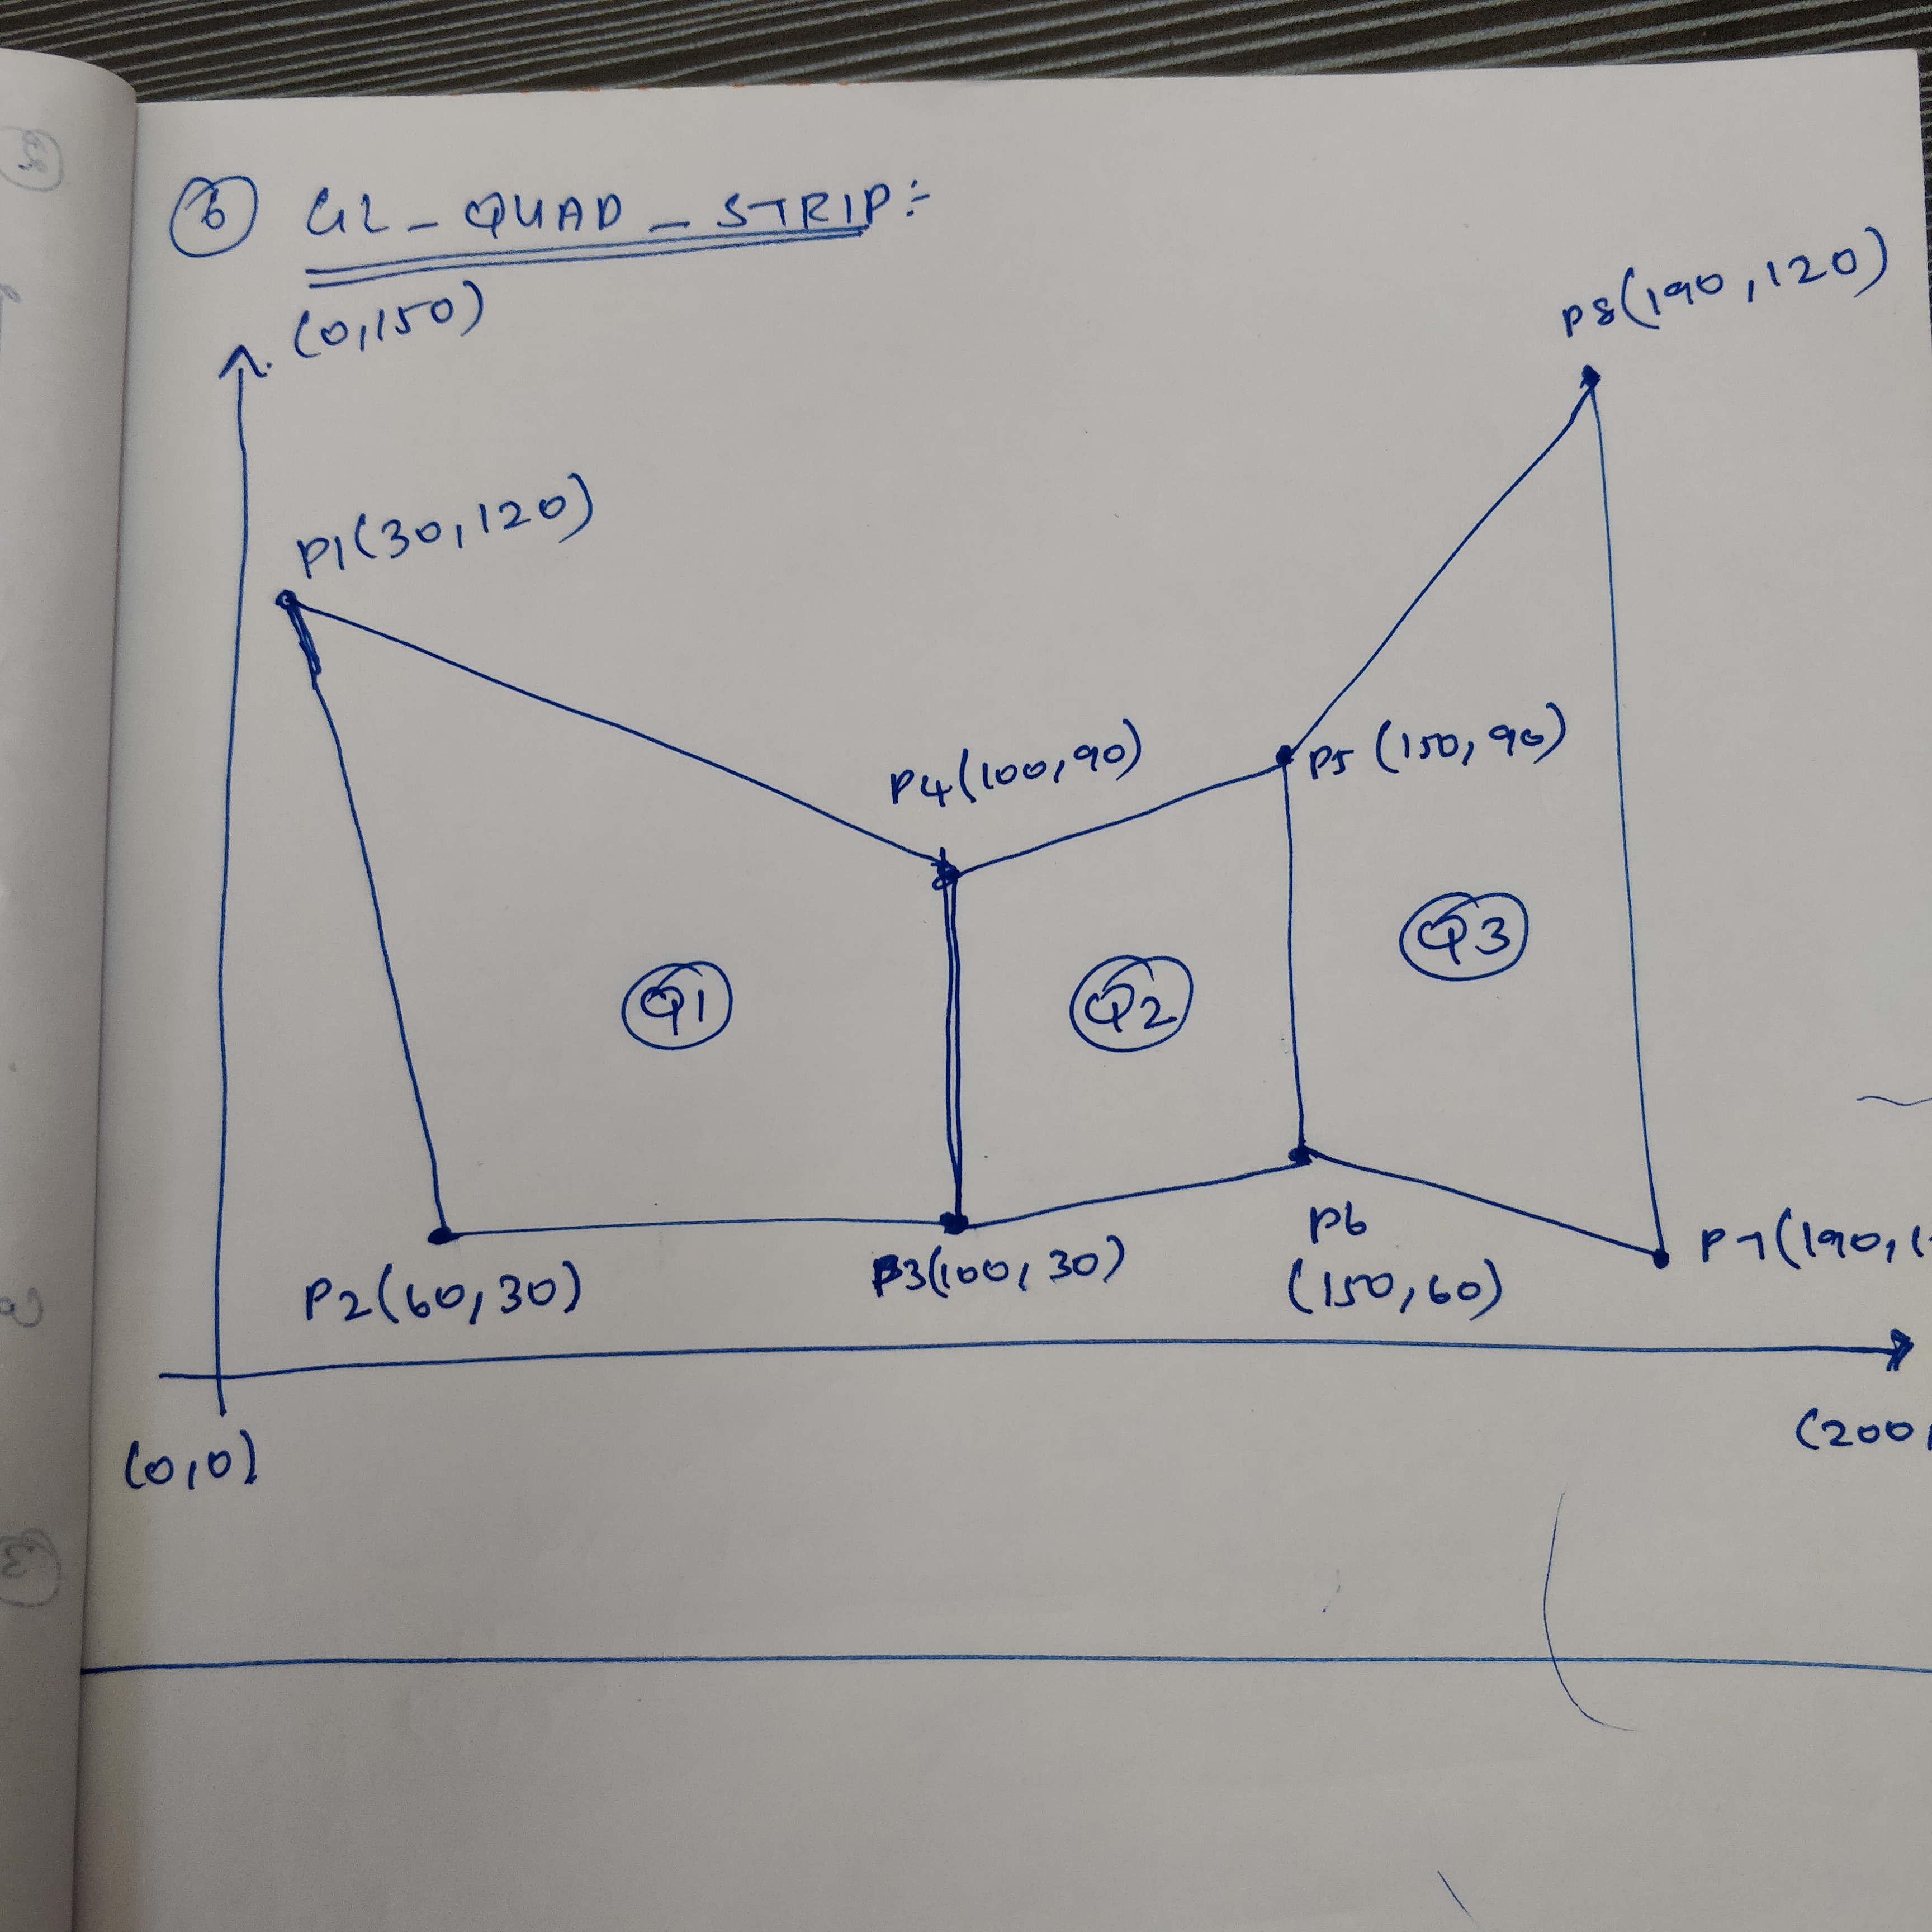 6 GL_QUAD_STRIP:-
(0,150)
P8(190,120)
P1(30,120)
P4(100,90)
P5 (150,90)
Q3
Q1
Q2
P6
P7(190,
P3(100,30)
P2(60,30)
(150,60)
(200,
(0,0)